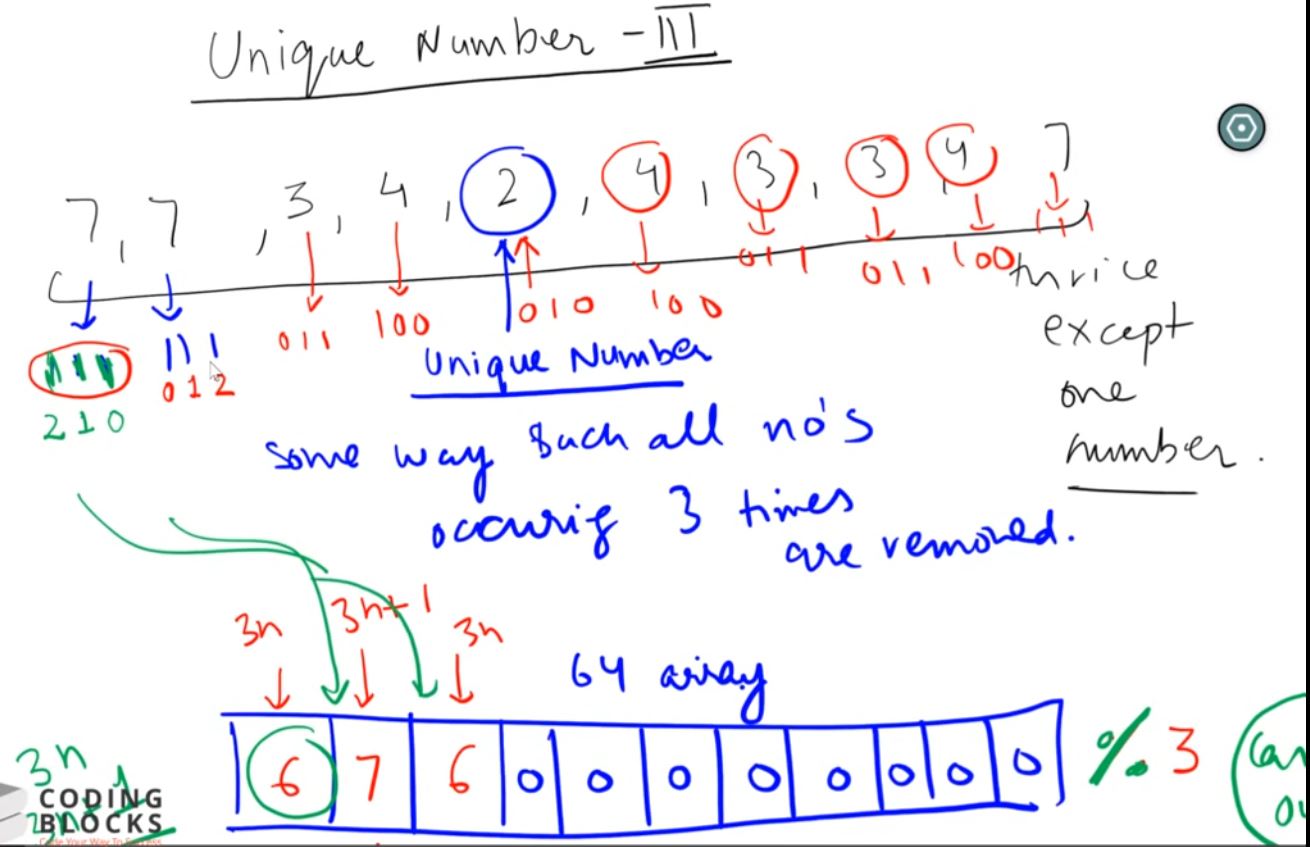 Unique Number - III
7, 7, 3, 4, 2, 4, 3, 3, 4, 7
111 111 011 100 010 100 011 011 100 111
210 012
thrice
except
one
number.
Unique Number
Some way such all no's
occurig 3 times
are removed.
3n 3n+1 3n
64 array
6 7 6 0 0 0 0 0 0 0 0 % 3
3n
CODING
BLOCKS
Code Your Way To Success